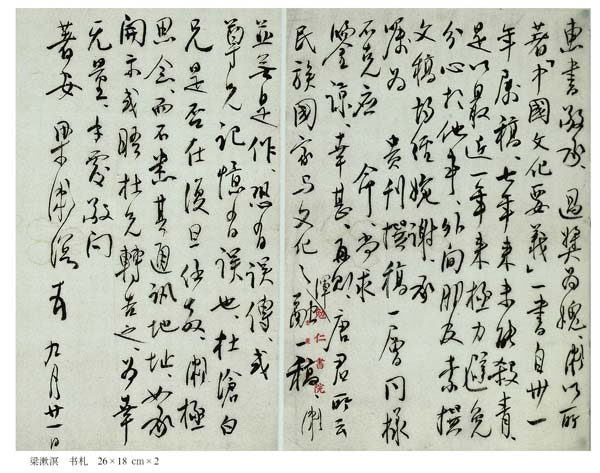 惠書敬承 過獎為愧 漱以所
著「中國文化要義」一書自卅一
年屬稿、七年來未能殺青、
是以最近一年來極力避免
分心於他事、外间朋友索撰
文稿均經婉謝、承
囑為 貴刊撰稿一層同樣
不克應 命、尚求
鑒諒、幸甚、再則、唐君所云
民族國家与文化之渾融一稿、漱
勉仁書院
並無是作、恐有誤傳、或
尊兄記憶有誤也、杜滄白
兄是否在復旦任教、漱極
思念、而不悉其通訊地址、如承
開示或晤杜兄轉告之、为幸
无量、手覆敬问
著安 梁漱溟 九月廿一日
梁漱溟 书札 26×18 cm×2